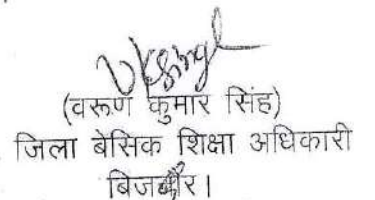 (वरूण कुमार सिंह)
जिला बेसिक शिक्षा अधिकारी
बिजनौर।